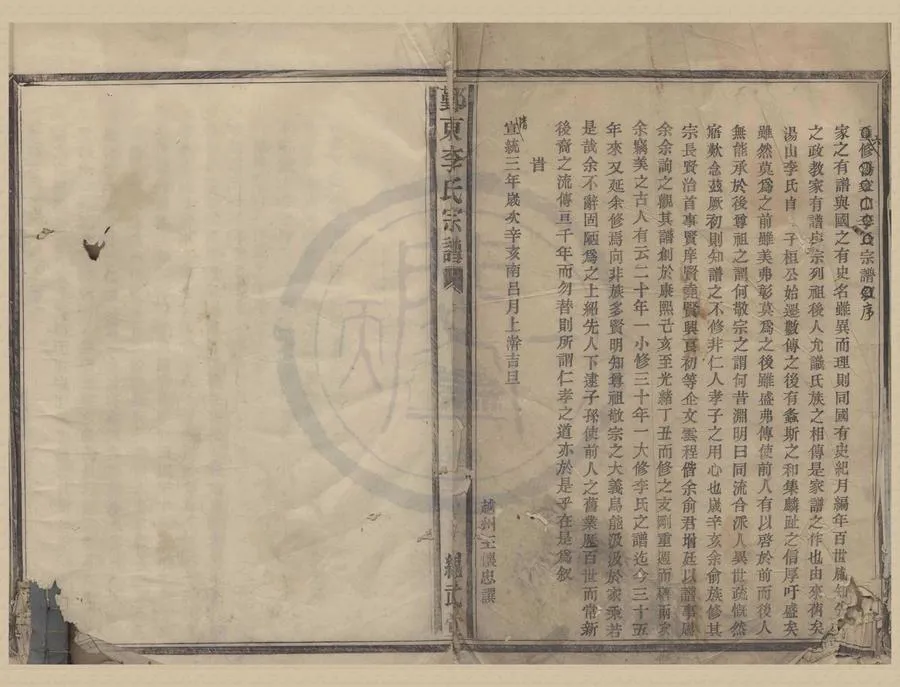 重修湯山李氏宗譜序
家之有譜與國之有史名雖異而理則同國有史紀月編年百世咸知
之政教家有譜宗列祖後人允識氏族之相傳是家譜之作也由來舊矣
湯山李氏自子桓公始遷數傳之後有螽斯之和集麟趾之信厚吁盛矣
雖然莫為之前雖美弗彰莫為之後雖盛弗傳使前人有以啓於前而後人
無能承於後尊祖之謂何敬宗之謂何昔淵明曰同流合派人異世疏慨然
寤歎念茲厥初則知譜之不修非仁人孝子之用心也歲辛亥余俞族修其
宗長賢治首事賢庠賢堯賢興真初等企文雲程偕余俞君增廷以譜事
余余詢之觀其譜創於康熙己亥至光緒丁丑而修之支剛重週而
余竊美之古人有云二十年一小修三十年一大修李氏之譜迄今三十五
年來又延余修焉向非族多賢明知尊祖敬宗之大義烏能汲汲於家乘若
是哉余不辭固陋為之上紹先人下逮子孫使前人之舊業歷百世而常新
後裔之流傳亘千年而勿替則所謂仁孝之道亦於是乎在是為叙
旹
清
宣統三年歲次辛亥南呂月上澣吉旦
越州王懷忠譔
鄞東李氏宗譜
繩武堂